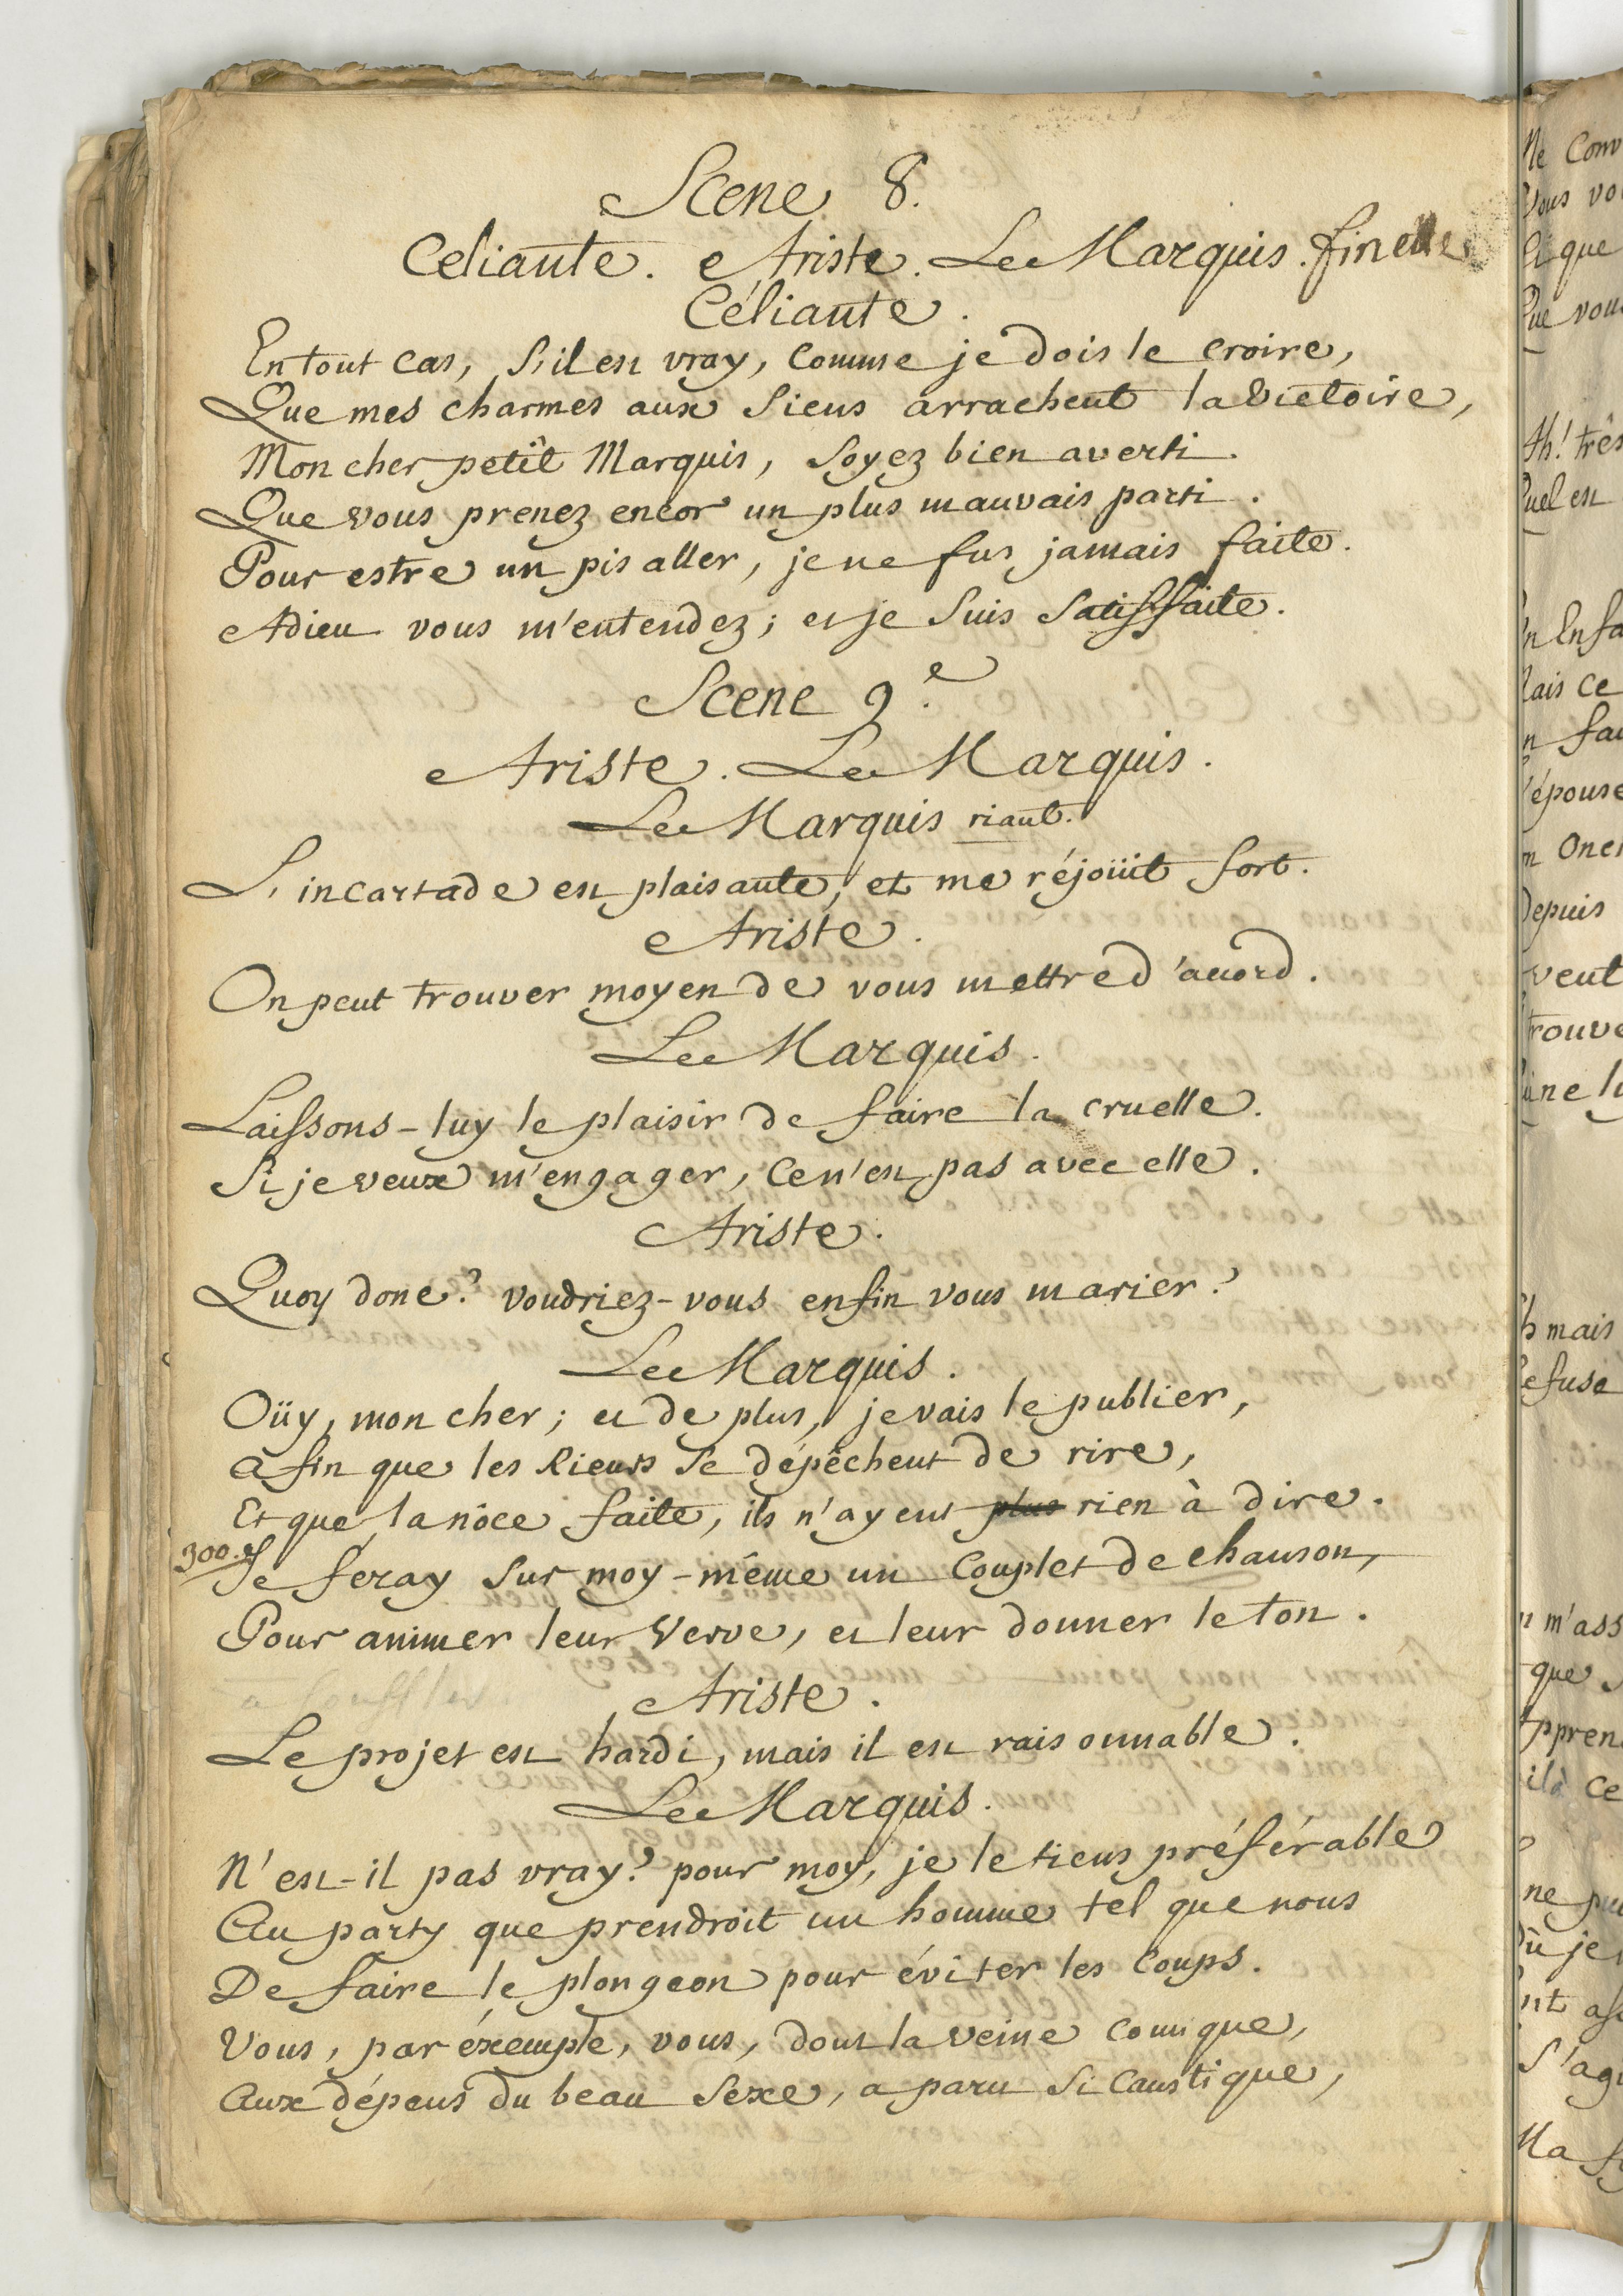 Scene 8.
Celiante. Ariste. Le Marquis. finette
Céliante.
En tout cas, s'il est vray, comme je dois le croire,
Que mes charmes aux siens arrachent la victoire,
Mon cher petit Marquis, soyez bien averti.
Que vous prenez encor un plus mauvais parti.
Pour estre un pis aller, je ne fus jamais faite.
Adieu vous m'entendez; et je suis satisfaite.
Scene 9.e
Ariste. Le Marquis.
Le Marquis riant.
L'incartade est plaisante, et me réjoüit fort.
Ariste.
On peut trouver moyen de vous mettre d'acord.
Le Marquis.
Laissons-luy le plaisir de faire la cruelle.
Si je veux m'engager, ce n'est pas avec elle.
Ariste.
Quoy donc? voudriez-vous enfin vous marier?
Le Marquis.
Oüy, mon cher; et de plus, je vais le publier,
Afin que les Rieurs se dépêchent de rire,
Et que la nôce faite, ils n'ayent plus rien à dire.
300. Je feray sur moy-même un couplet de chanson,
Pour animer leur verve, et leur donner le ton.
Ariste.
Le projet est hardi, mais il est raisonnable.
Le Marquis.
N'est-il pas vray? pour moy, je le tiens préférable
Au party que prendroit un homme tel que nous
De faire le plongeon pour éviter les coups.
Vous, par éxemple, vous, dont la veine comique,
Aux dépens du beau sexe, a paru si caustique,
Ne
vous
Et que
Que vous
Ah! très
Quel est
épouse
Depuis
veut
mais
refuse
que
ne